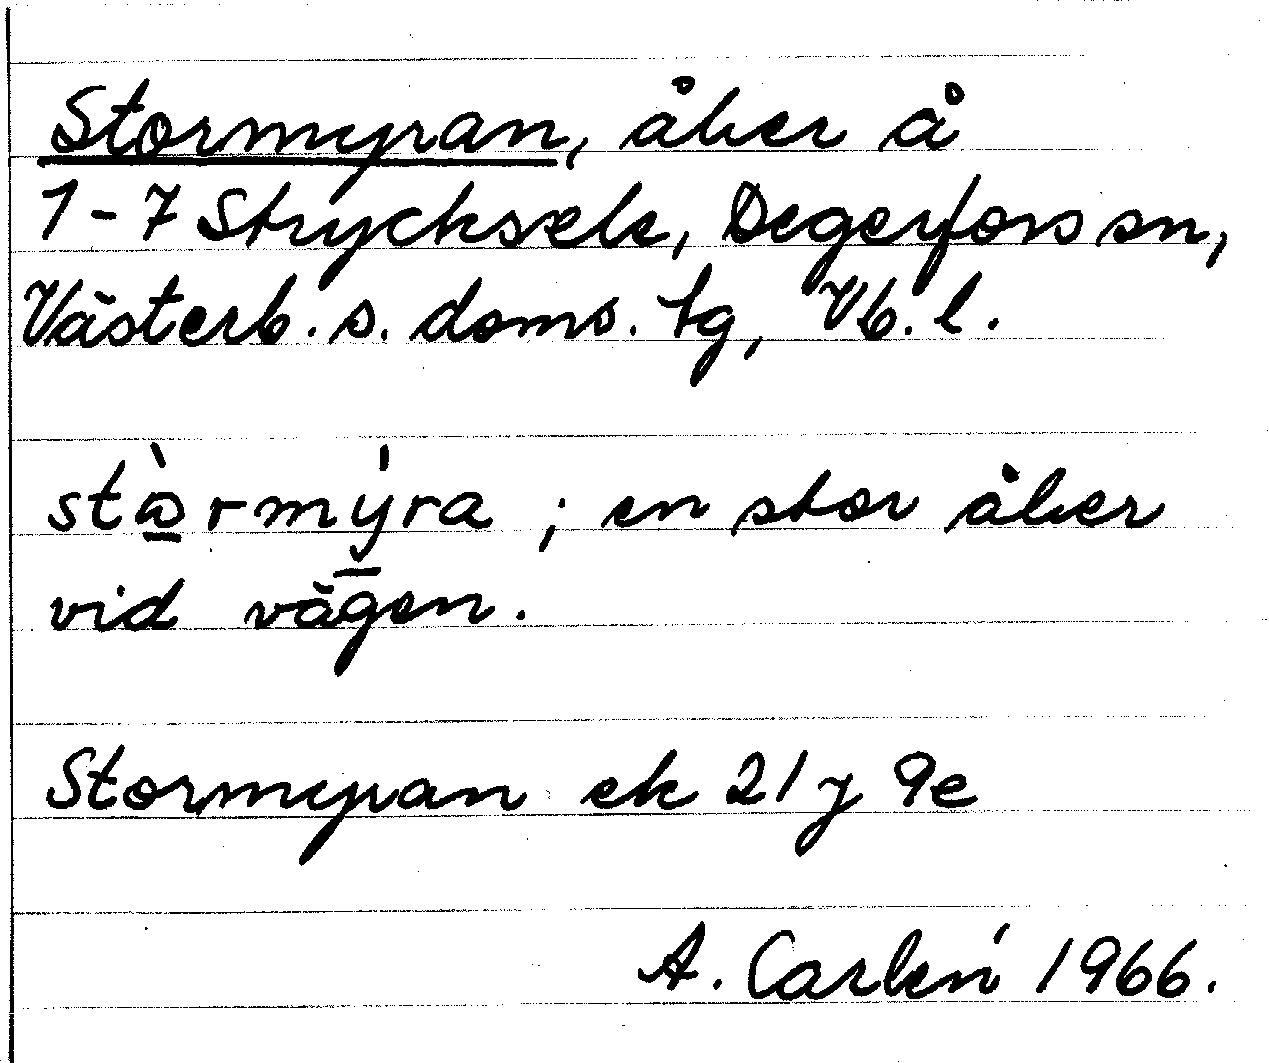 Stormyran, åker å
1-7 Strycksele, Degerfors sn,
Västerb. s. doms. tg, Vb. l.
stò̱rmý̱ra ; en stor åker
vid vägen.
Stormyran ek 21 J 9e
A. Carlén 1966.